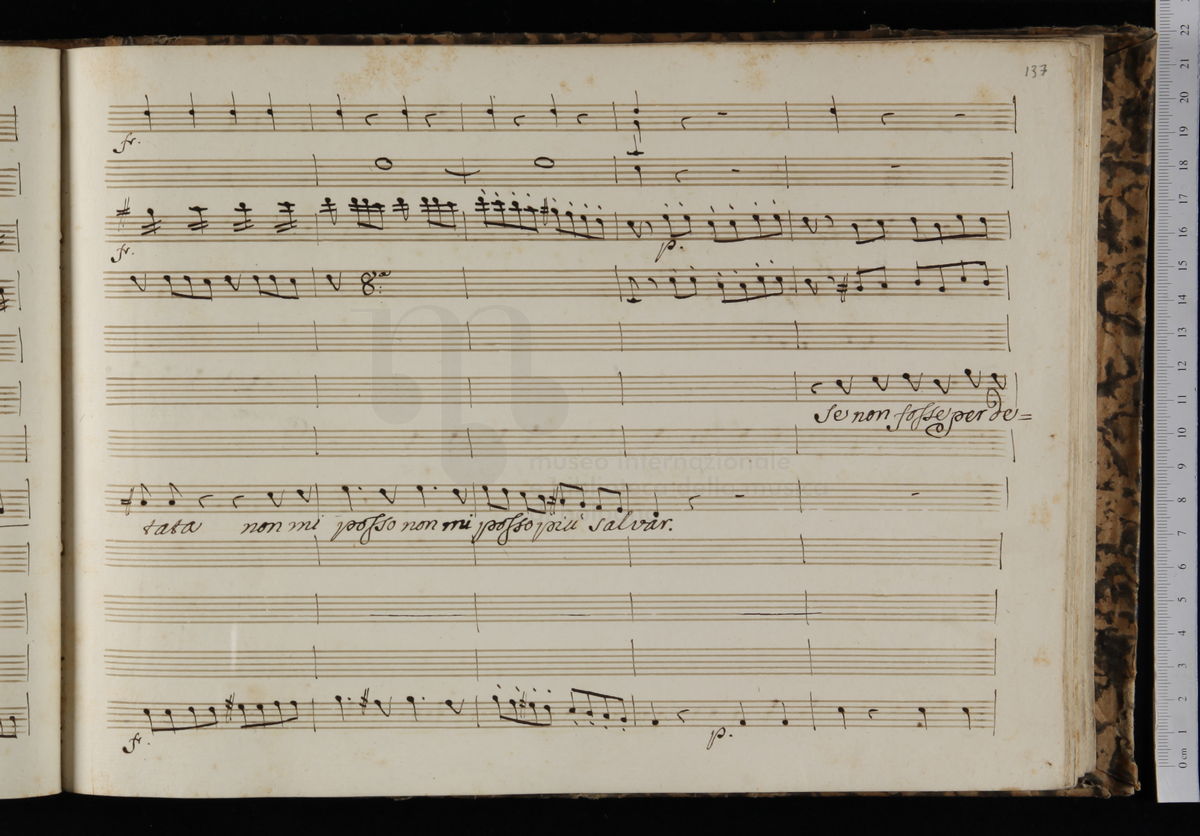 137
fr.
fr.
p.
8.va
Se non fosse per de=
museo internazionale
tata non mi posso non mi posso più salvar.
fr.
p.
22
21
20
19
18
17
16
15
14
13
12
11
10
9
8
7
6
5
4
3
2
1
0 cm